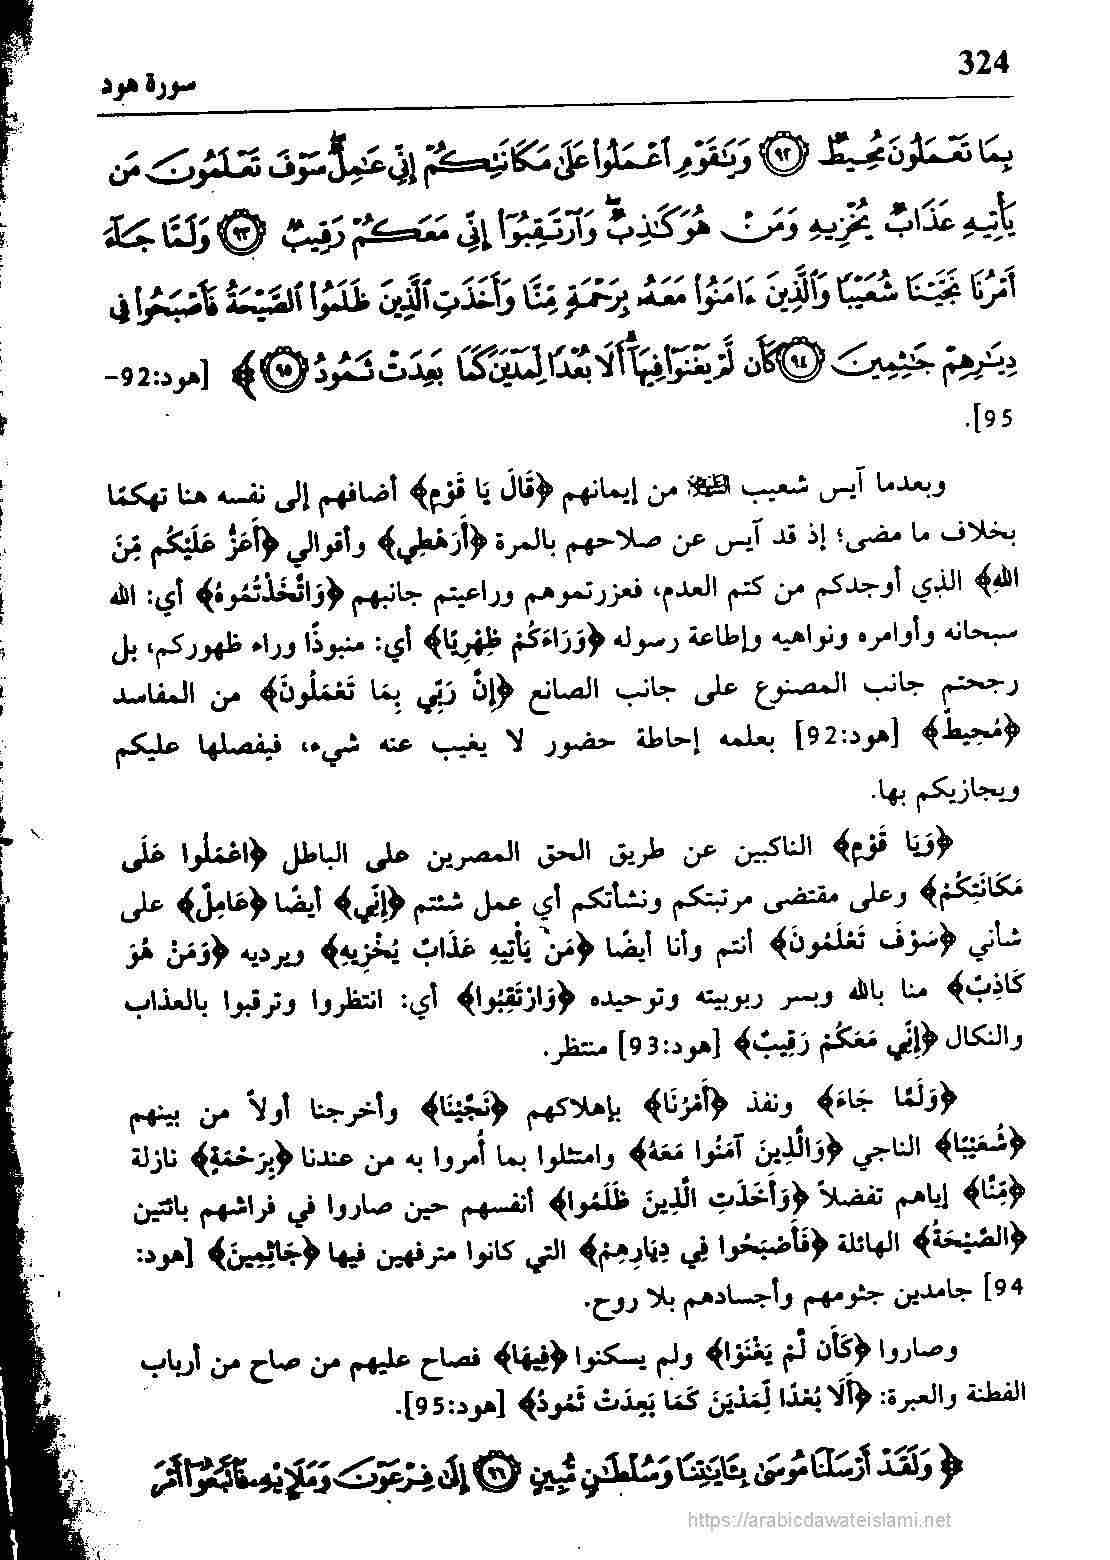 324
سورة هود
بِمَا تَعْمَلُونَ مُحِيطٌ ۝٩٢ وَيَٰقَوْمِ ٱعْمَلُوا۟ عَلَىٰ مَكَانَتِكُمْ إِنِّى عَٰمِلٌ ۖ سَوْفَ تَعْلَمُونَ مَن
يَأْتِيهِ عَذَابٌ يُخْزِيهِ وَمَنْ هُوَ كَٰذِبٌ ۖ وَٱرْتَقِبُوٓا۟ إِنِّى مَعَكُمْ رَقِيبٌ ۝٩٣ وَلَمَّا جَآءَ
أَمْرُنَا نَجَّيْنَا شُعَيْبًا وَٱلَّذِينَ ءَامَنُوا۟ مَعَهُۥ بِرَحْمَةٍ مِّنَّا وَأَخَذَتِ ٱلَّذِينَ ظَلَمُوا۟ ٱلصَّيْحَةُ فَأَصْبَحُوا۟ فِى
دِيَٰرِهِمْ جَٰثِمِينَ ۝٩٤ كَأَن لَّمْ يَغْنَوْا۟ فِيهَآ ۗ أَلَا بُعْدًا لِّمَدْيَنَ كَمَا بَعِدَتْ ثَمُودُ ۝٩٥﴾ [هود:92-
95].
وبعدما آيس شعيب ﷺ من إيمانهم ﴿قَالَ يَا قَوْمِ﴾ أضافهم إلى نفسه هنا تهكمًا
بخلاف ما مضى؛ إذ قد آيس عن صلاحهم بالمرة ﴿أَرَهْطِي﴾ وأقوالي ﴿أَعَزُّ عَلَيْكُم مِّنَ
اللهِ﴾ الذي أوجدكم من كتم العدم، فعزرتموهم وراعيتم جانبهم ﴿وَاتَّخَذْتُمُوهُ﴾ أي: الله
سبحانه وأوامره ونواهيه وإطاعة رسوله ﴿وَرَاءَكُمْ ظِهْرِيًا﴾ أي: منبوذًا وراء ظهوركم، بل
رجحتم جانب المصنوع على جانب الصانع ﴿إِنَّ رَبِّي بِمَا تَعْمَلُونَ﴾ من المفاسد
﴿مُحِيطٌ﴾ [هود:92] بعلمه إحاطة حضور لا يغيب عنه شيء، فيفصلها عليكم
ويجازيكم بها.
﴿وَيَا قَوْمِ﴾ الناكبين عن طريق الحق المصرين على الباطل ﴿اعْمَلُوا عَلَى
مَكَانَتِكُمْ﴾ وعلى مقتضى مرتبتكم ونشأتكم أي عمل شئتم ﴿إِنِّي﴾ أيضًا ﴿عَامِلٌ﴾ على
شأني ﴿سَوْفَ تَعْلَمُونَ﴾ أنتم وأنا أيضًا ﴿مَن يَأْتِيهِ عَذَابٌ يُخْزِيهِ﴾ ويرديه ﴿وَمَنْ هُوَ
كَاذِبٌ﴾ منا بالله وبسر ربوبيته وتوحيده ﴿وَارْتَقِبُوا﴾ أي: انتظروا وترقبوا بالعذاب
والنكال ﴿إِنِّي مَعَكُمْ رَقِيبٌ﴾ [هود:93] منتظر.
﴿وَلَمَّا جَاءَ﴾ ونفذ ﴿أَمْرُنَا﴾ بإهلاكهم ﴿نَجَّيْنَا﴾ وأخرجنا أولاً من بينهم
﴿شُعَيْبًا﴾ الناجي ﴿وَالَّذِينَ آمَنُوا مَعَهُ﴾ وامتثلوا بما أُمروا به من عندنا ﴿بِرَحْمَةٍ﴾ نازلة
﴿مِّنَّا﴾ إياهم تفضلاً ﴿وَأَخَذَتِ الَّذِينَ ظَلَمُوا﴾ أنفسهم حين صاروا في فراشهم بائتين
﴿الصَّيْحَةُ﴾ الهائلة ﴿فَأَصْبَحُوا فِي دِيَارِهِمْ﴾ التي كانوا مترفهين فيها ﴿جَاثِمِينَ﴾ [هود:
94] جامدين جثومهم وأجسادهم بلا روح.
وصاروا ﴿كَأَن لَّمْ يَغْنَوْا﴾ ولم يسكنوا ﴿فِيهَا﴾ فصاح عليهم من صاح من أرباب
الفطنة والعبرة: ﴿أَلَا بُعْدًا لِّمَدْيَنَ كَمَا بَعِدَتْ ثَمُودُ﴾ [هود:95].
﴿وَلَقَدْ أَرْسَلْنَا مُوسَىٰ بِـَٔايَٰتِنَا وَسُلْطَٰنٍ مُّبِينٍ ۝٩٦ إِلَىٰ فِرْعَوْنَ وَمَلَإِي۟هِۦ فَٱتَّبَعُوٓا۟ أَمْرَ
https://arabicdawateislami.net